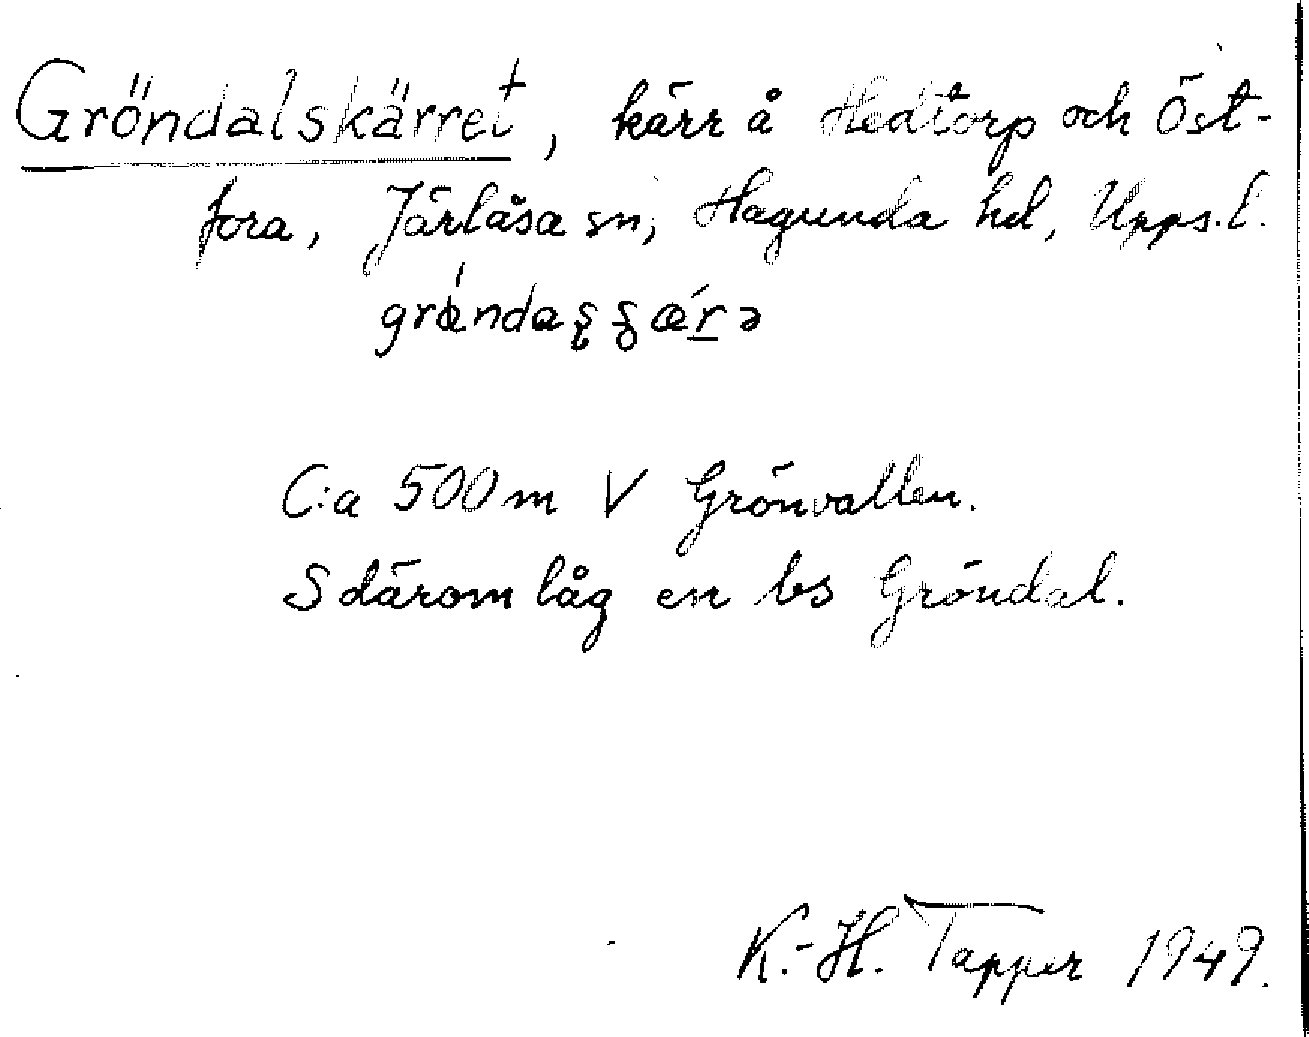 Gröndalskärret, kärr å Hedtorp och Öst-
fora, Järlåsa sn, Hagunda hd, Upps. l.
C:a 500 m V Grönvallen.
S därom låg en bs Gröndal.
K.-H. Tapper 1949.